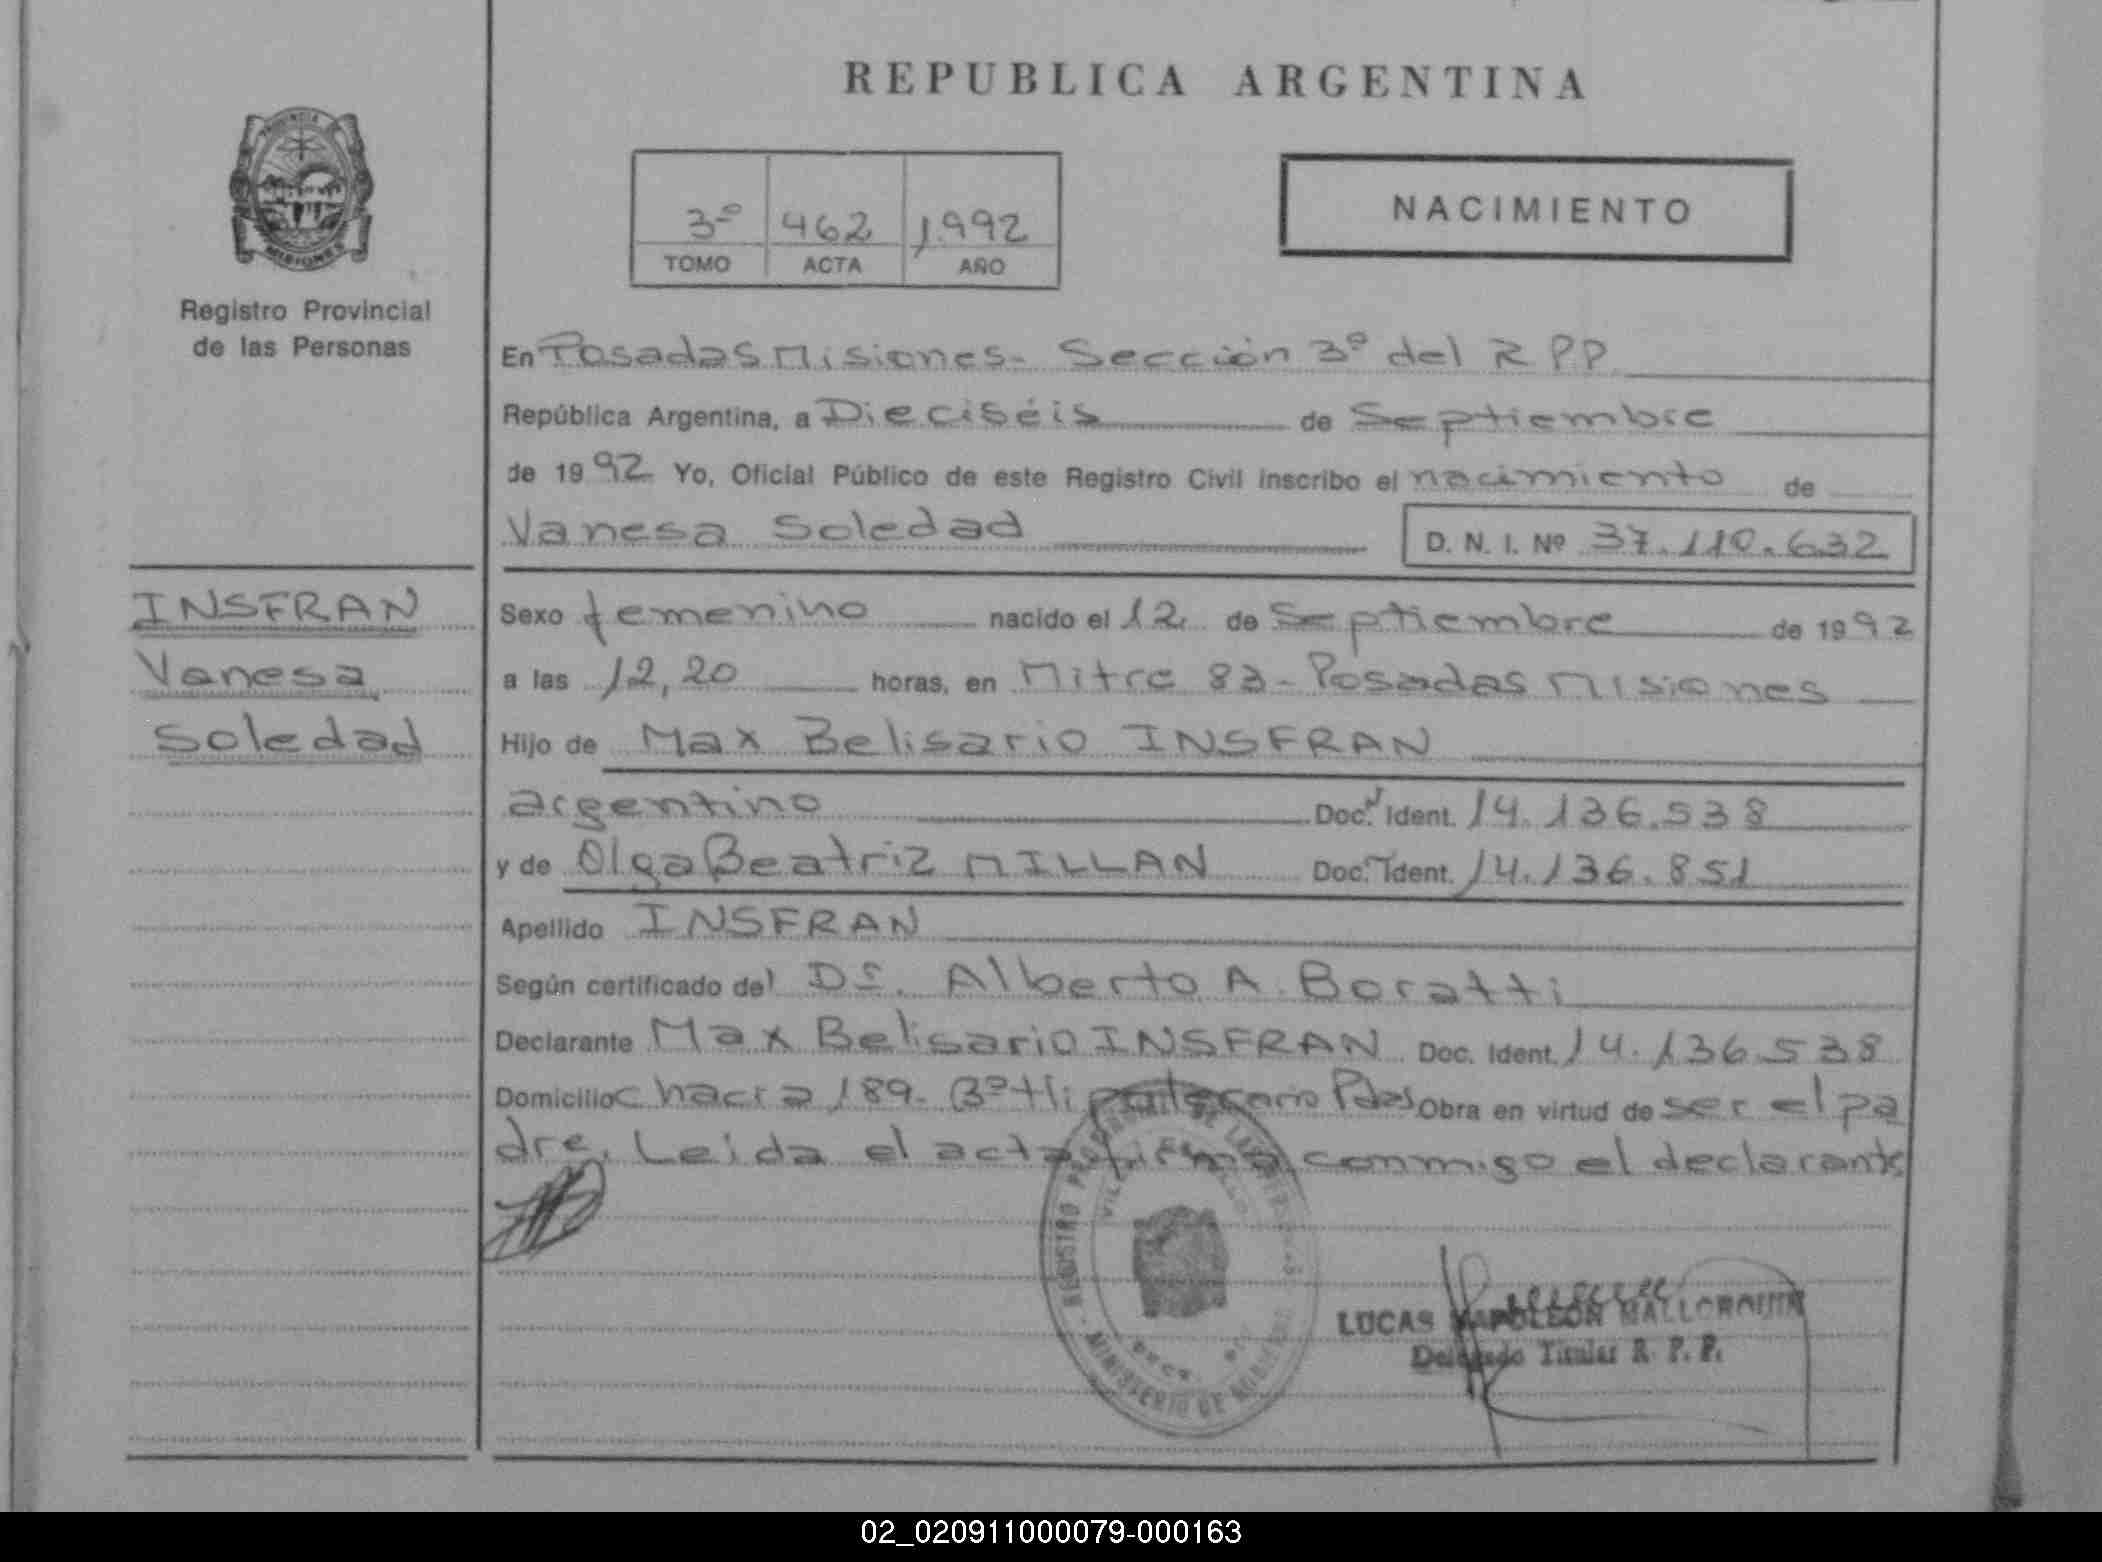 REPUBLICA ARGENTINA
PROVINCIA
MISIONES
Registro Provincial
de las Personas
3º 462 1.992
TOMO ACTA AÑO
NACIMIENTO
En Posadas Misiones- Sección 3º del R P P
República Argentina, a Dieciséis de Septiembre
de 1992 Yo, Oficial Público de este Registro Civil inscribo el nacimiento de
Vanesa Soledad D. N. I. Nº 37.110.632
INSFRAN
Vanesa
Soledad
Sexo femenino nacido el 12 de Septiembre de 1992
a las 12,20 horas, en Mitre 83- Posadas Misiones
Hijo de Max Belisario INSFRAN
argentino Doc. Ident. 14.136.538
y de Olga Beatriz MILLAN Doc. Ident. 14.136.851
Apellido INSFRAN
Según certificado del Dr. Alberto A. Boratti
Declarante Max Belisario INSFRAN Doc. Ident. 14.136.538
Domicilio Chacra 189- Bº Hipotecario Pdas Obra en virtud de ser el pa
dre. Leida el acta firma conmigo el declarante
REGISTRO DE LAS
MINISTERIO DE
LUCAS NAPOLEON MALLORQUIN
Delegado Titular R. P. P.
02_020911000079-000163